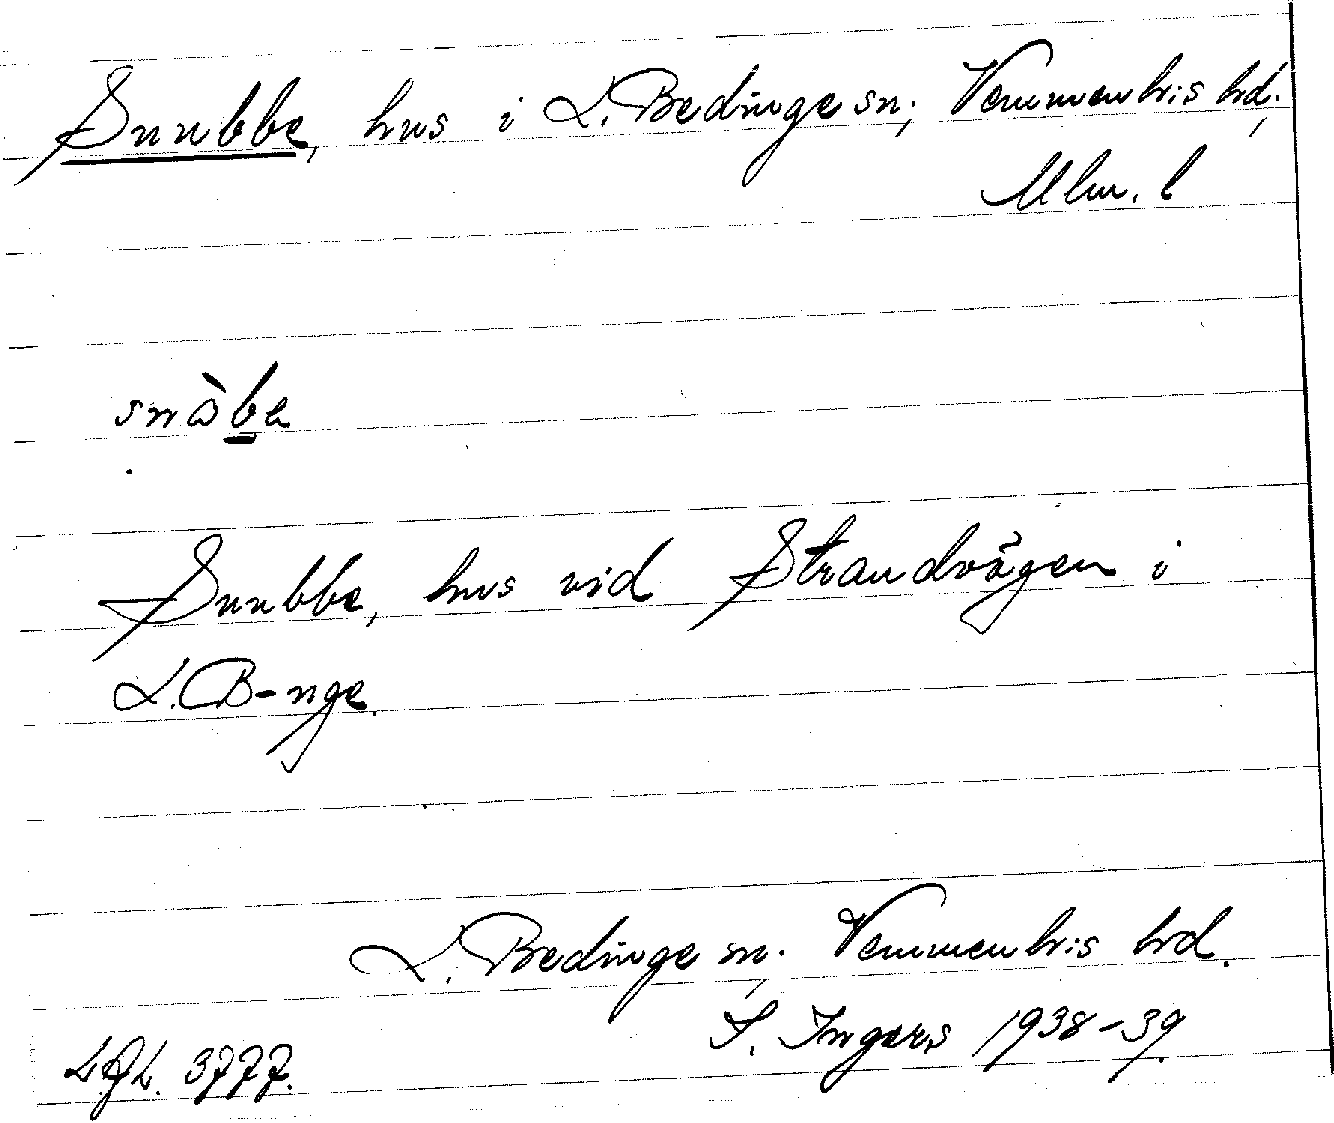 Snubbe, hus i L. Bedinge sn, Vemmenh:s hd,
Mlm. l
snòbe
Snubbe, hus vid Strandvägen i
L. B-nge.
L. Bedinge sn, Vemmenh:s hd.
I. Ingers 1938-39
3777.